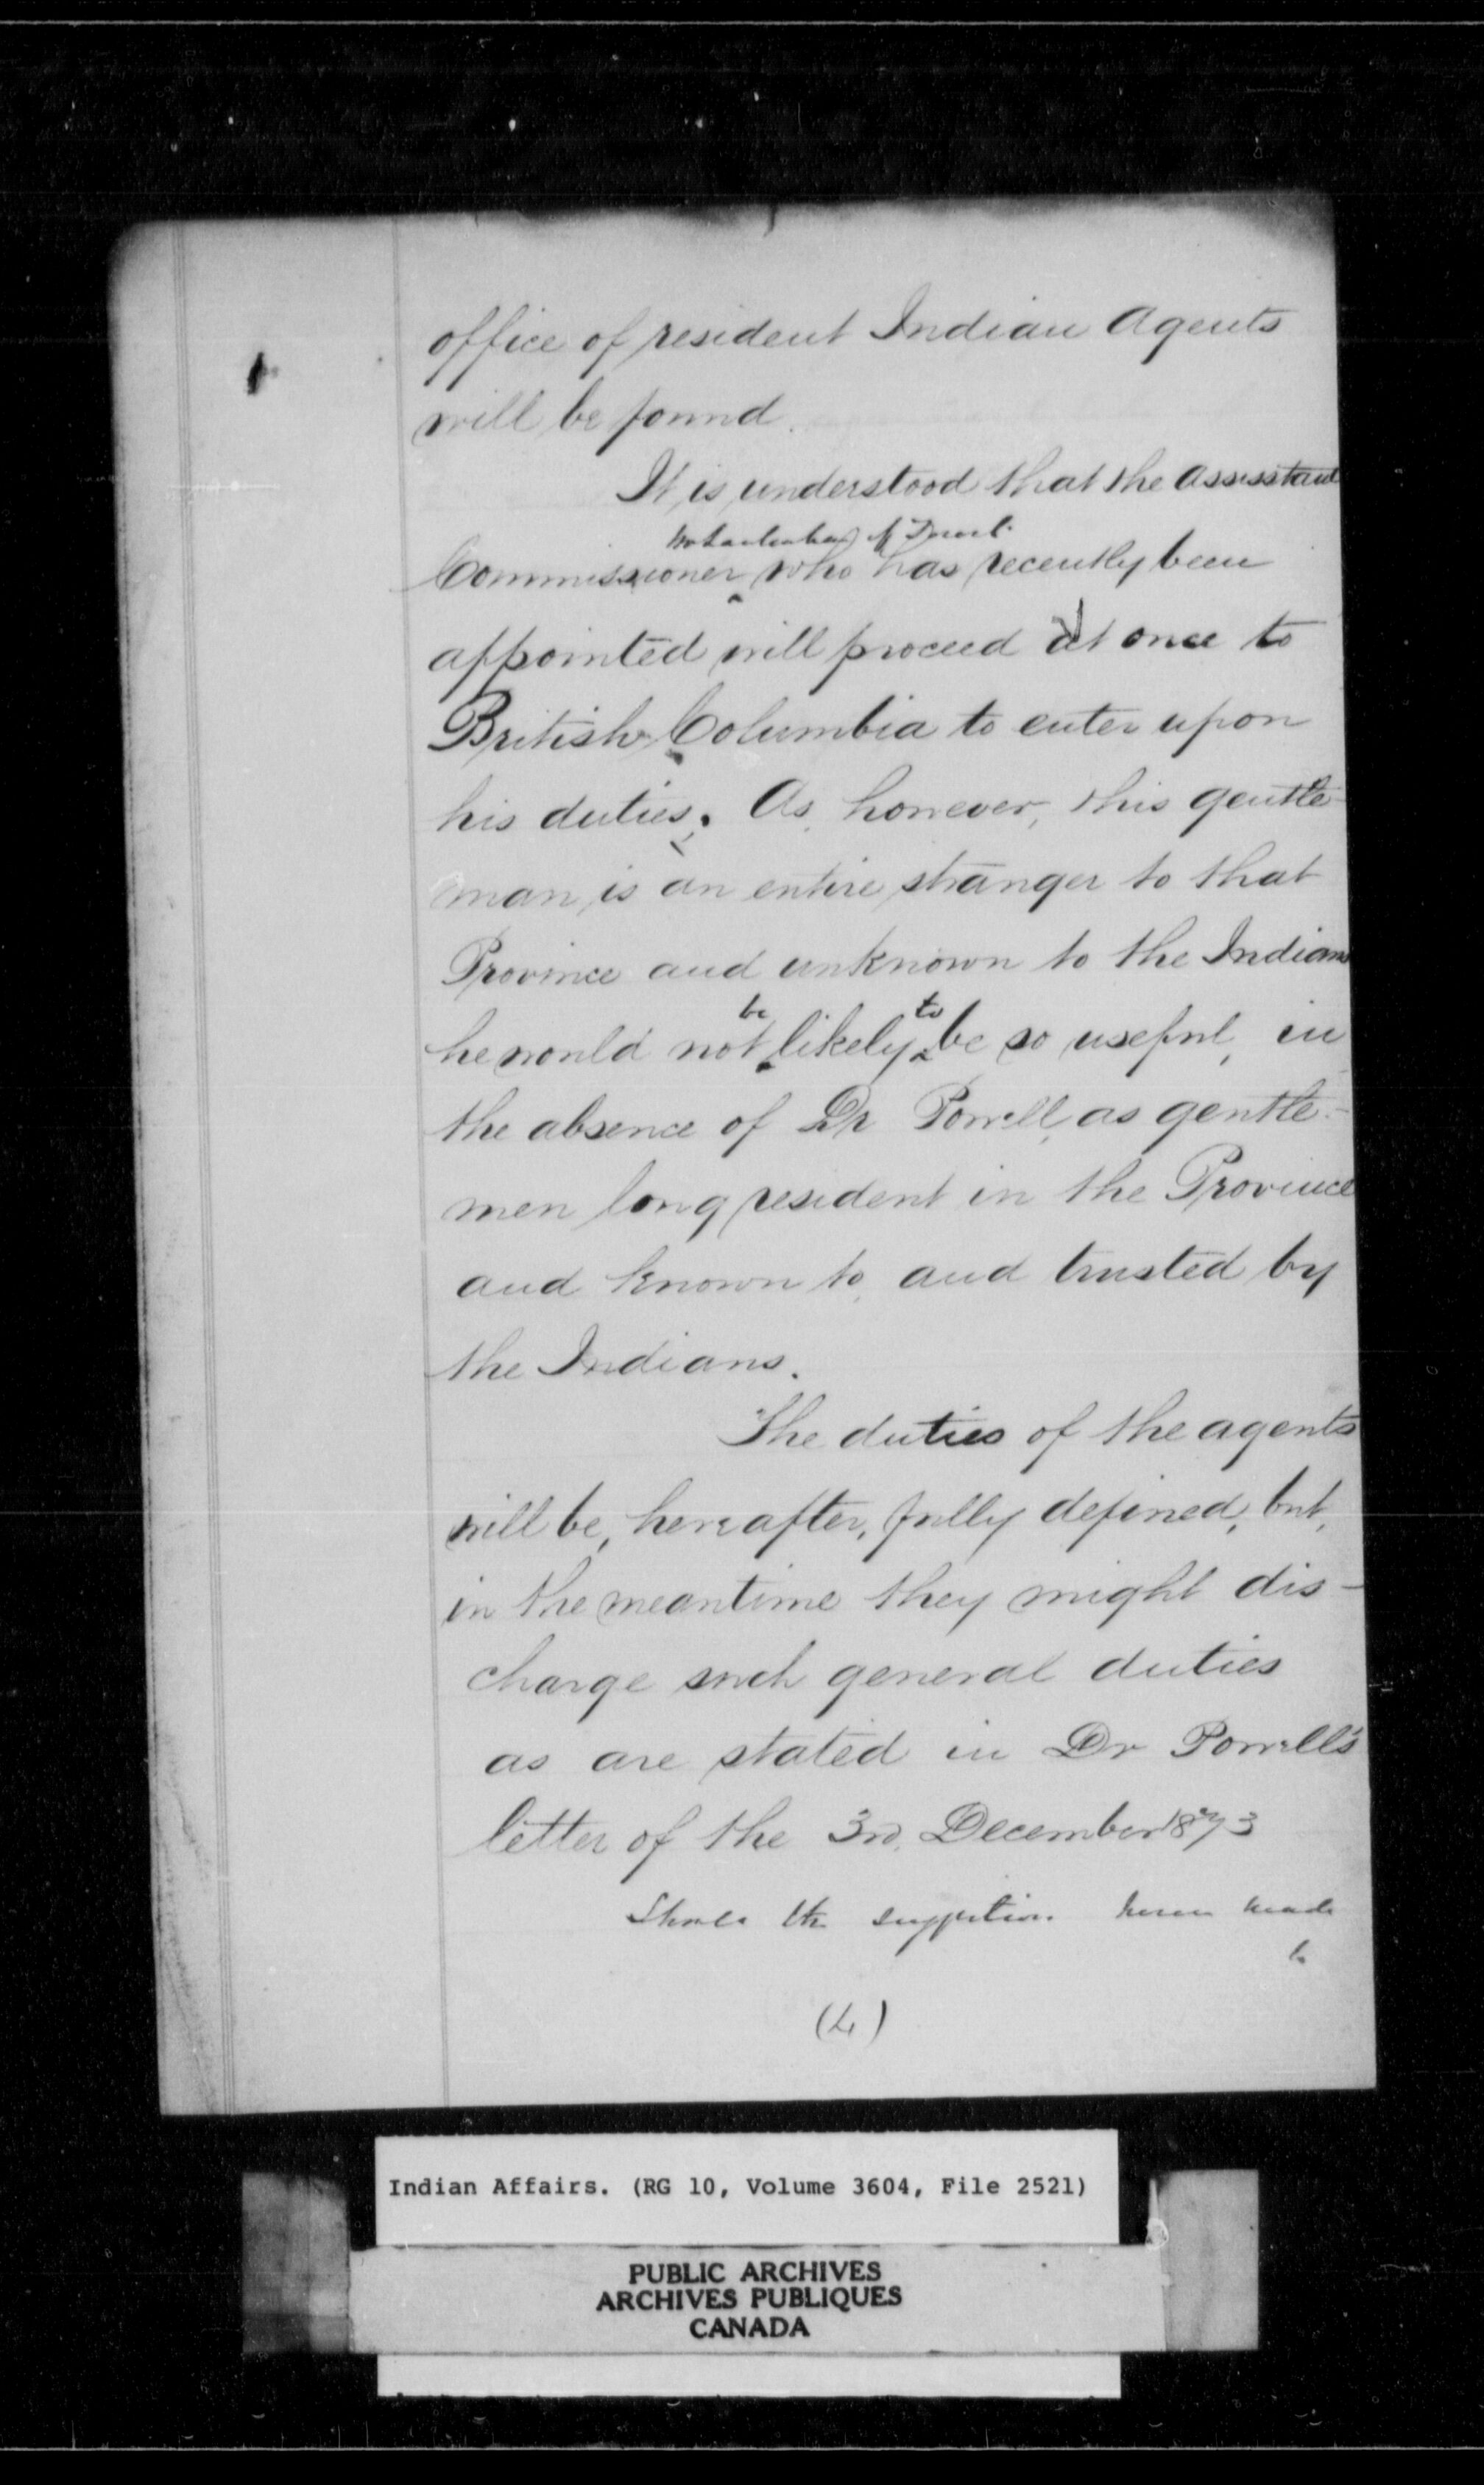 office of resident Indian Agents
will be found.
It is understood that the Assistant
Commissioner who has recently been
appointed will proceed at once to
British Columbia to enter upon
his duties. As, however, this gentle-
man is an entire stranger to that
Province and unknown to the Indians
be to
he would not likely be so useful, in
the absence of Dr Powell, as gentle-
men long resident in the Province
and known to, and trusted by
the Indians.
The duties of the agents
will be, hereafter, fully defined, but,
in the meantime they might dis-
charge such general duties
as are stated in Dr Powell's
letter of the 3rd. December 1873
Should the suggestion herein made
be
(4)
Indian Affairs. (RG 10, Volume 3604, File 2521)
PUBLIC ARCHIVES
ARCHIVES PUBLIQUES
CANADA